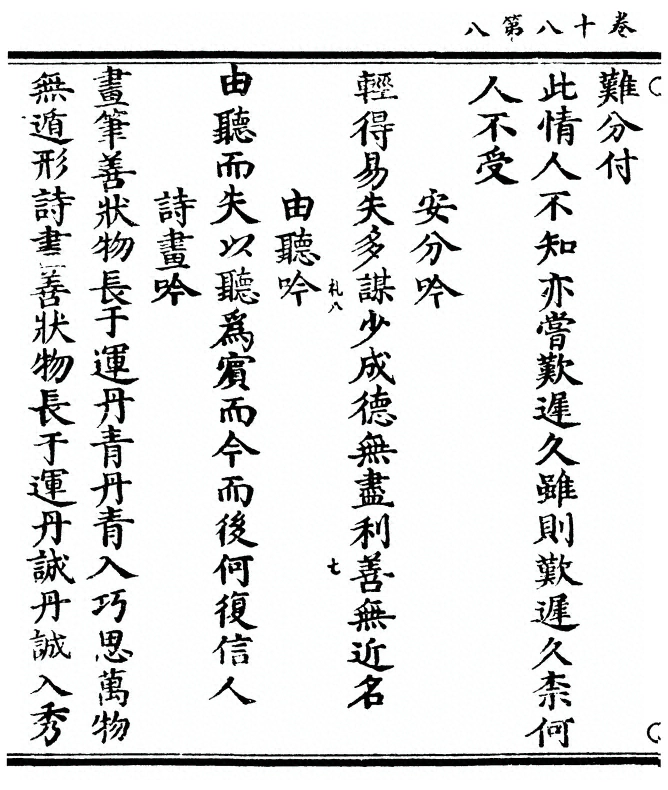 卷十八第八
難分付
此情人不知亦嘗歎遲久雖則歎遲久柰何
人不受
安分吟
輕得易失多謀少成德無盡利善無近名
札八
七
由聽吟
由聽而失以聽爲賔而今而後何復信人
詩畫吟
畫筆善狀物長于運丹青丹青入巧思萬物
無遁形詩畫善狀物長于運丹誠丹誠入秀